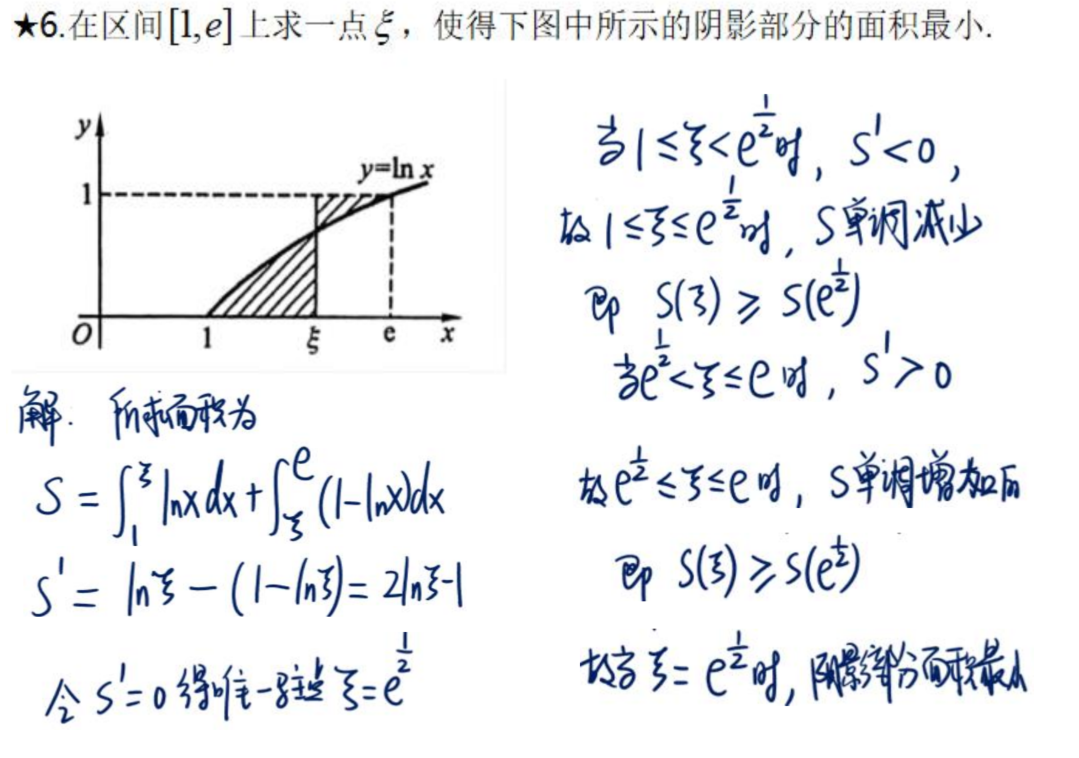 ★6.在区间[1,e]上求一点ξ，使得下图中所示的阴影部分的面积最小.
y
y=ln x
1
O
1
ξ
e
x
解. 所求面积为
S = ∫₁^ξ lnx dx + ∫_ξ^e (1-lnx)dx
S' = lnξ - (1-lnξ) = 2lnξ-1
令 S'=0 得唯一驻点 ξ=e^(1/2)
当 1≤ξ<e^(1/2)时, S'<0,
故 1≤ξ≤e^(1/2)时, S单调减少
即 S(ξ) ≥ S(e^(1/2))
当e^(1/2)<ξ≤e时, S'>0
故e^(1/2)≤ξ≤e时, S单调增加
即 S(ξ)≥S(e^(1/2))
故当ξ=e^(1/2)时, 阴影部分面积最小